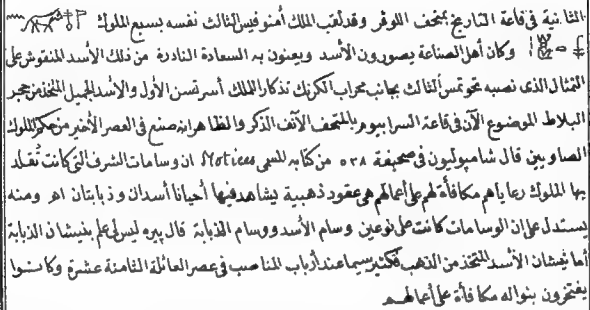 الثانية فى قاعة التاريخ بمتحف اللوفر وقد لقب الملك أمنوفيس الثالث نفسه بسبع الملوك
وكان أهل الصناعة يصورون الأسد ويعنون به السعادة النادرة من ذلك الأسد المنقوش على
التمثال الذى نصبه تحوتمس الثالث بجانب محراب الكرنك تذكارا للملك أسرتسن الأول والأسد الجميل المتخذ من حجر
البلاط الموضوع الآن فى قاعة السرابيوم بالمتحف الآنف الذكر والظاهر انه صنع فى العصر الأخير من حكم الملوك
الصاويين قال شامپوليون فى صحيفة ٥٢٨ من كتابه المسمى Notices ان وسامات الشرف التى كانت تُقلد
بها الملوك رعاياهم مكافأة لهم على اعمالهم هى عقود ذهبية يشاهد فيها أحيانا أسدان وذبابتان اهـ ومنه
يستدل على ان الوسامات كانت على نوعين وسام الأسد ووسام الذبابة قال پيره ليس لى علم بنيشان الذبابة
أما نيشان الأسد المتخذ من الذهب فكثير سيما عند أرباب المناصب فى عصر العائلة الثامنة عشرة وكانوا
يفتخرون بنواله مكافأة على أعمالهم